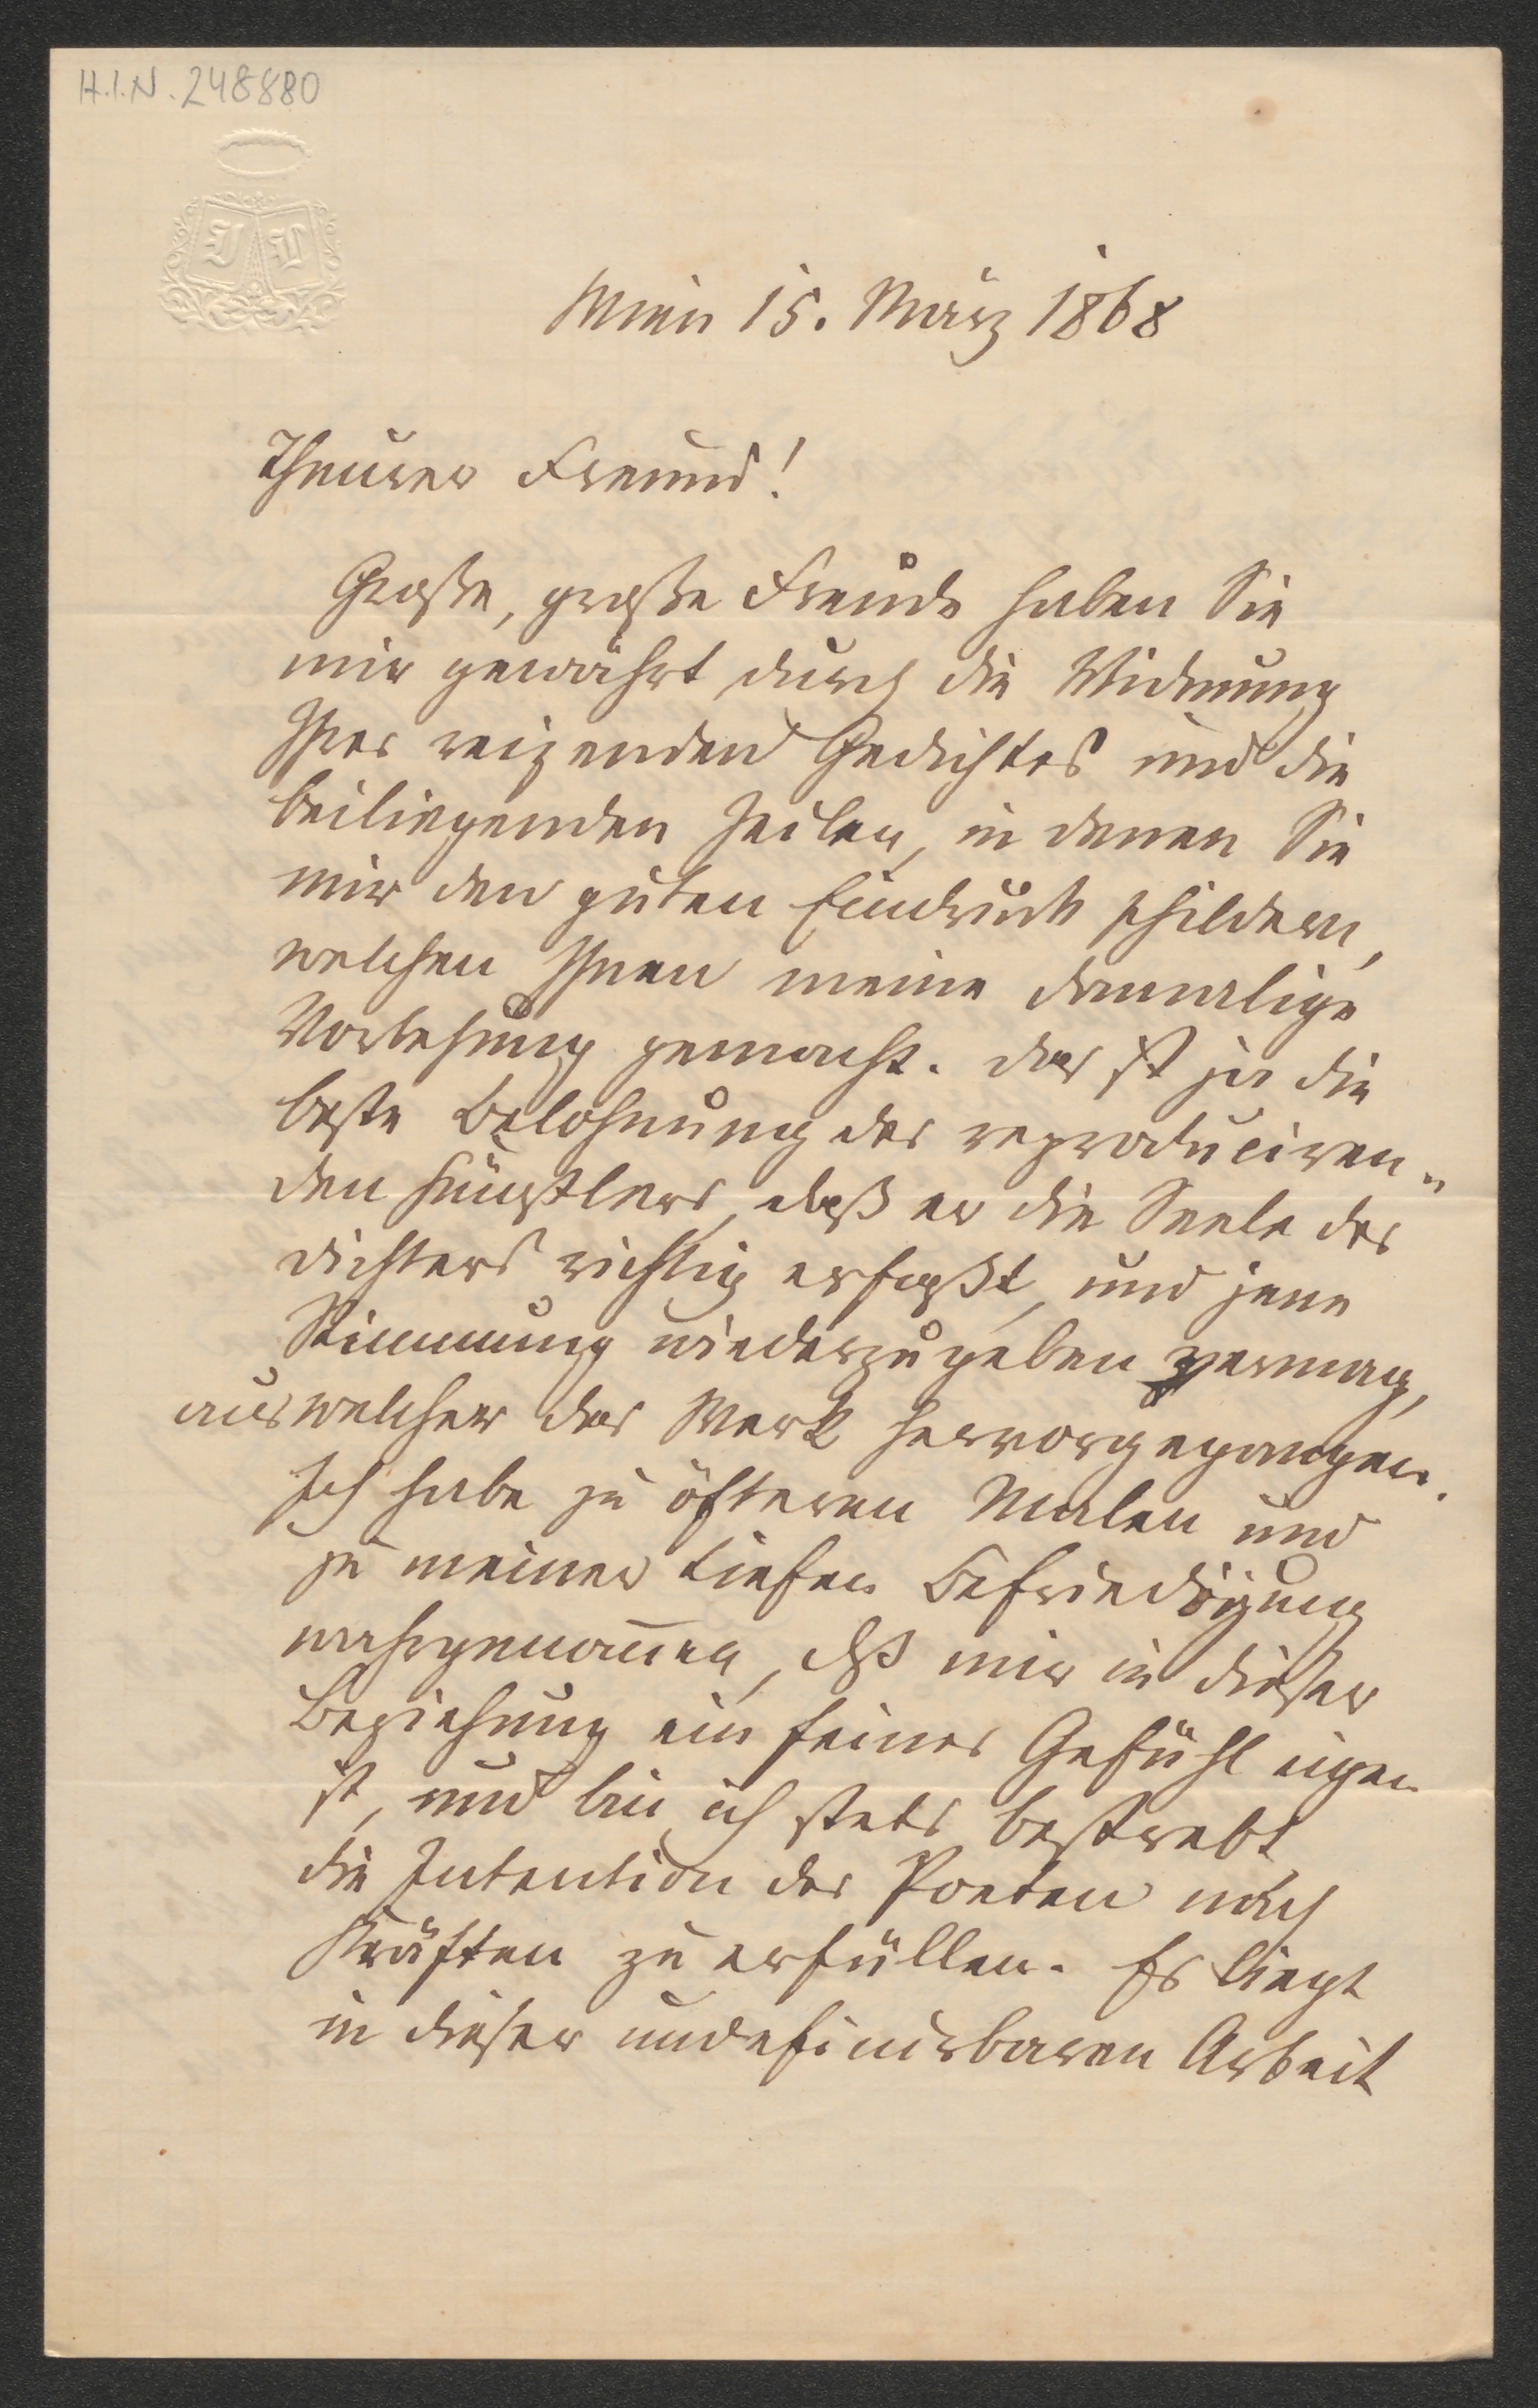 H.I.N. 248880
J L
Wien 15. März 1868
Theurer Freund!
Große, große Freude haben Sie
mir gewährt durch die Widmung
Ihres reizenden Gedichtes und die
beiliegenden Zeilen, in denen Sie
mir den guten Eindruck schildern,
welchen Ihnen meine damalige
Vorlesung gemacht. Das ist ja die
beste Belohnung des reproduciren„
den Künstlers, daß er die Seele des
Dichters richtig erfaßt, und jene
Stimmung wiederzugeben vermag,
aus welcher das Werk hervorgegangen.
Ich habe zu öfteren Malen und
zu meiner tiefen Befriedigung
wahrgenom̅en, dß mir in dieser
Beziehung ein feines Gefühl eigen
ist, und bin ich stets bestrebt
die Intention des Poeten nach
Kräften zu erfüllen. Es liegt
in dieser undefinirbaren Arbeit